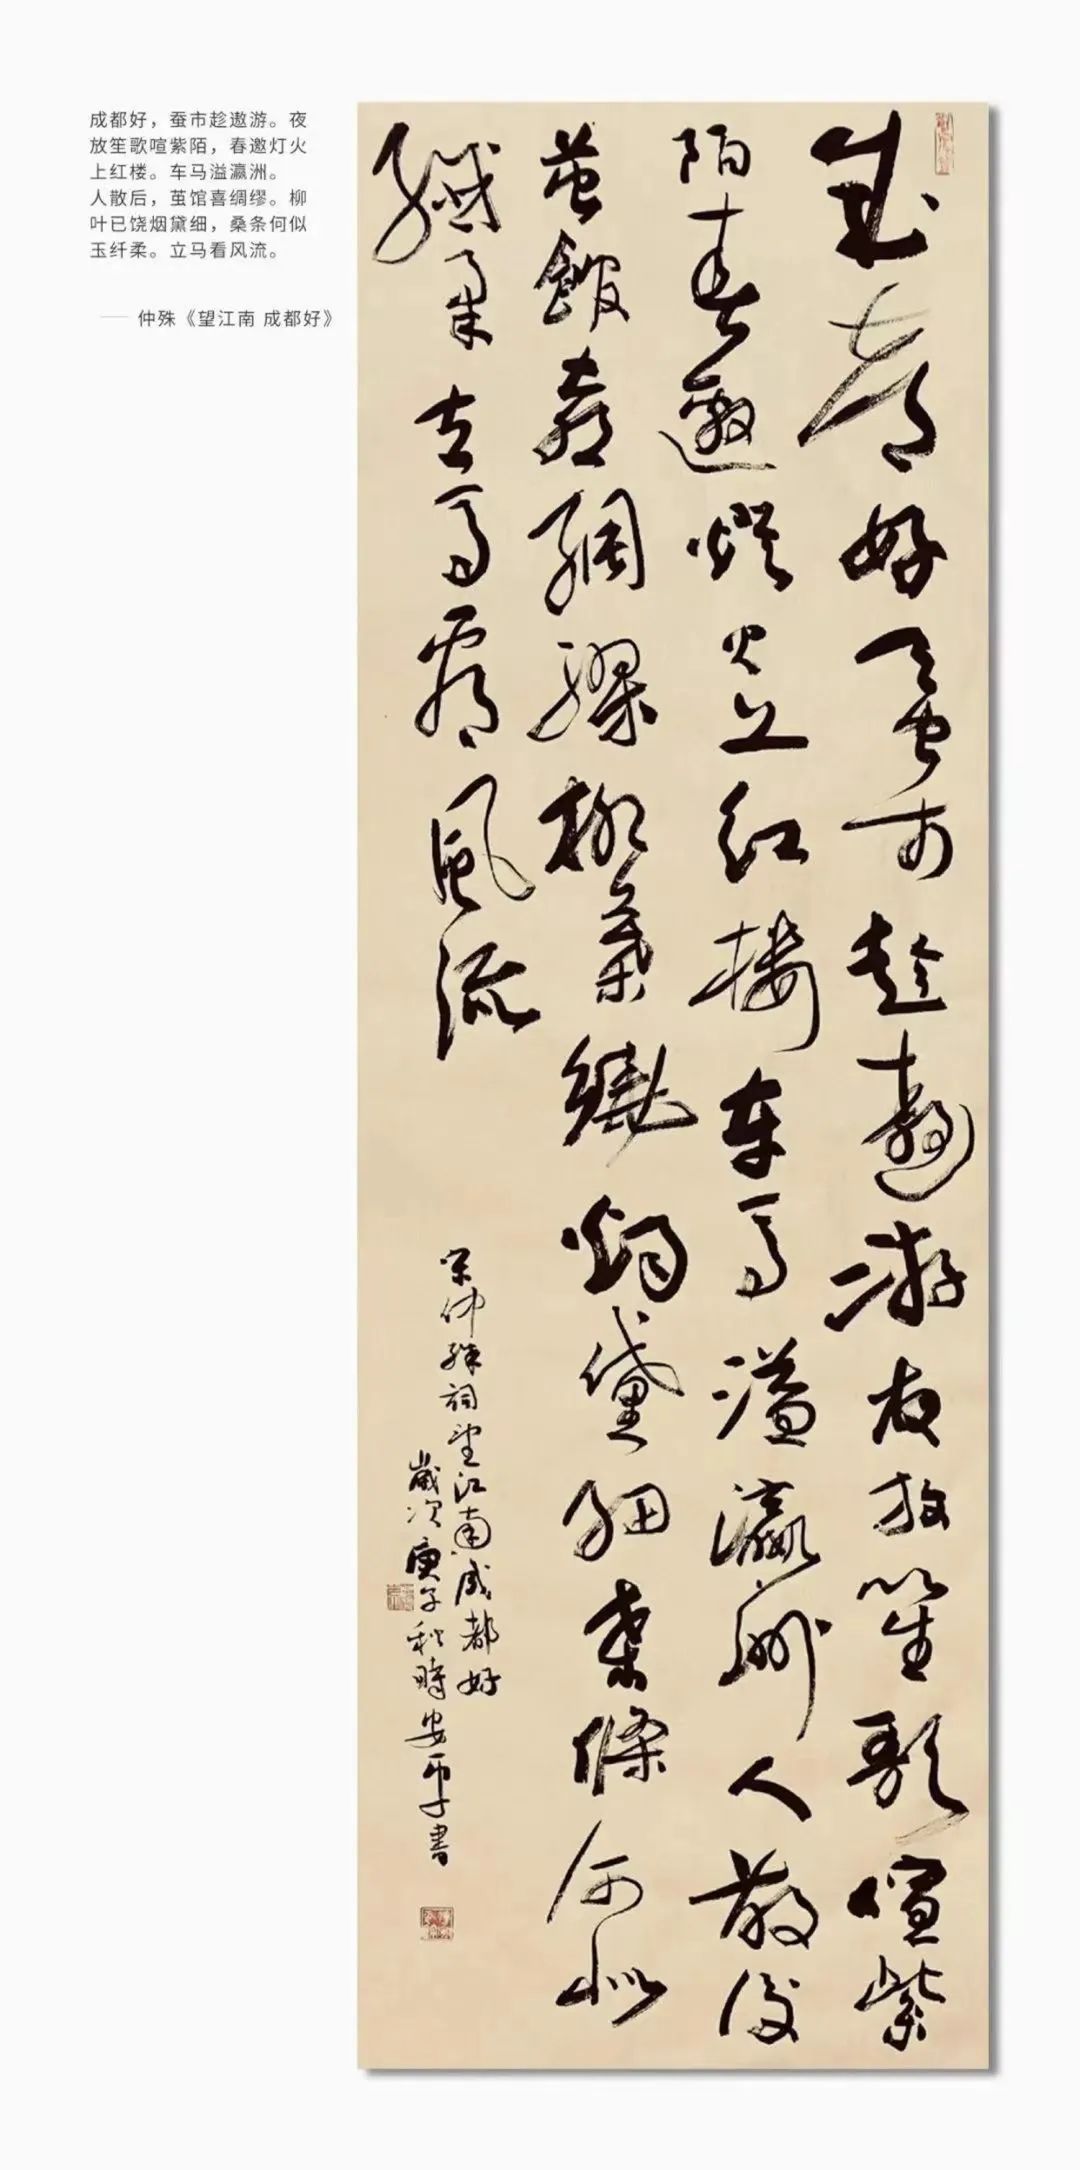 成都好，蚕市趁遨游。夜
放笙歌喧紫陌，春邀灯火
上红楼。车马溢瀛洲。
人散后，茧馆喜绸缪。柳
叶已饶烟黛细，桑条何似
玉纤柔。立马看风流。
—— 仲殊《望江南 成都好》
成都好蚕市趁遨游夜放笙歌喧紫
陌春邀燈火上紅樓車馬溢瀛洲人散後
茧館喜綢繆柳葉繞烟黛細桑條何似
纖柔立馬看風流
宋仲殊詞望江南成都好
歲次庚子秋時安平書